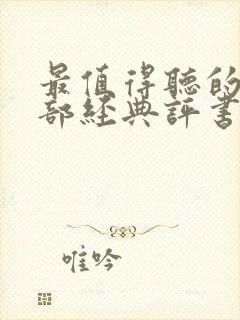 最值得聽的
部經典評書
唯吟